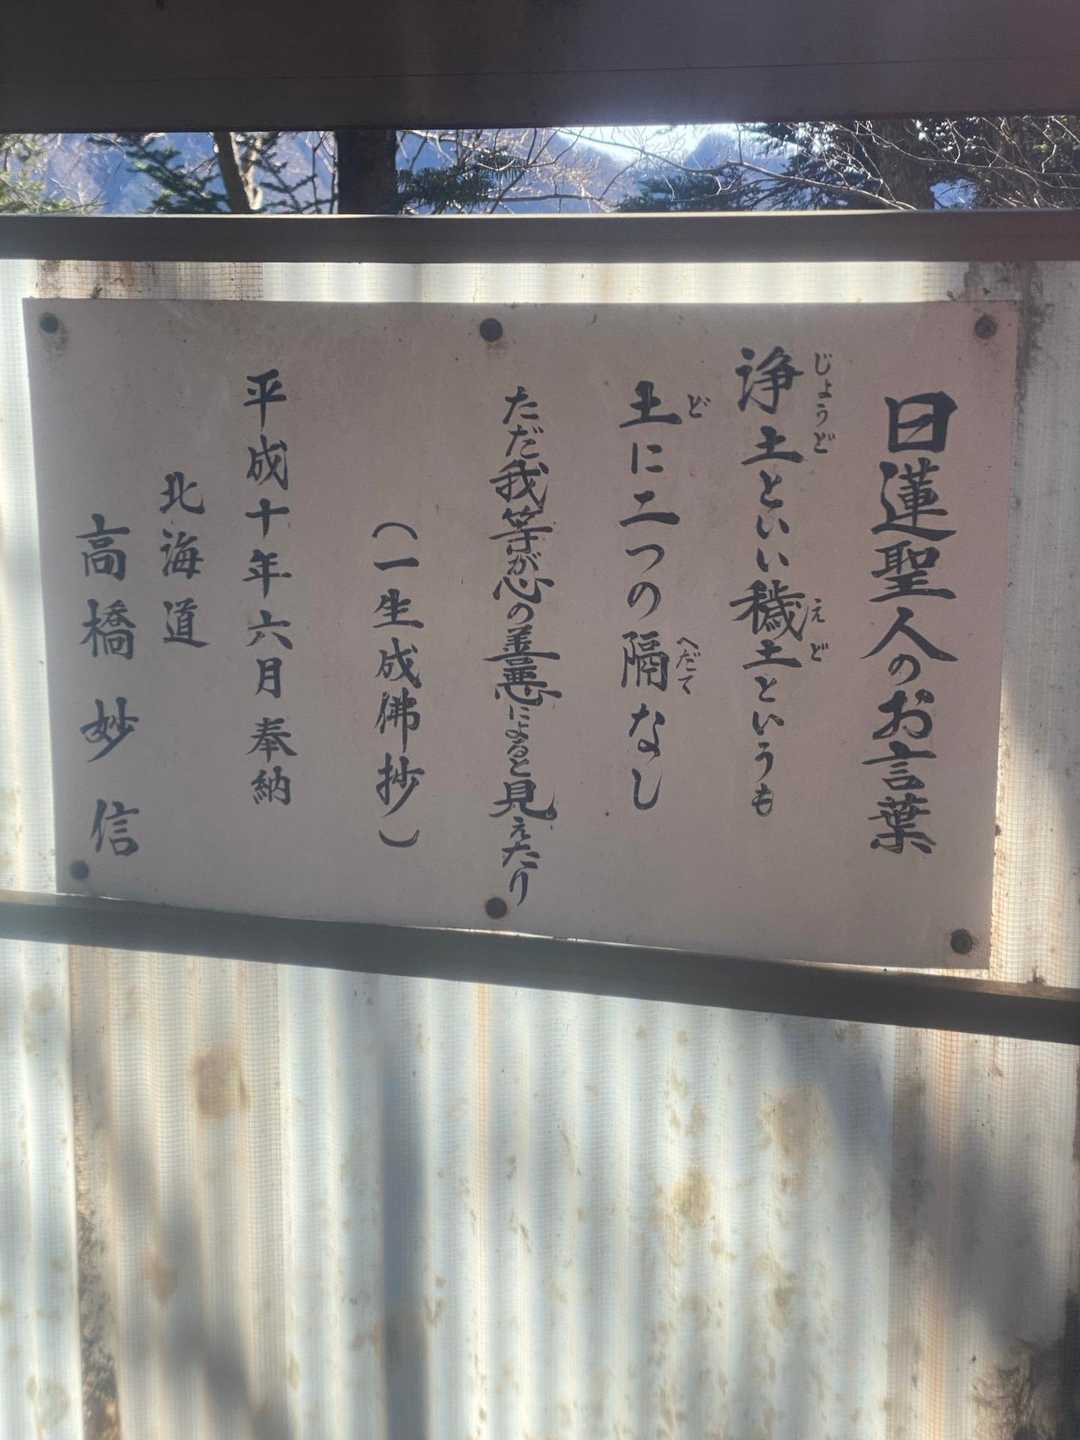 日蓮聖人のお言葉
浄土といい穢土というも
じょうど
えど
土に二つの隔なし
ど
へだて
ただ我等が心の善悪によると見えたり
（一生成佛抄）
平成十年六月奉納
北海道
高橋妙信